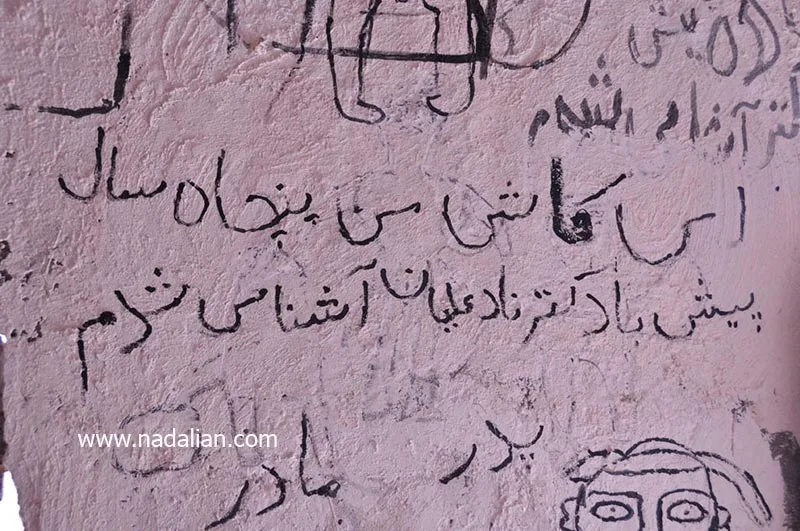 اس کاش من پنجاه سال
پیش با دکتر نادعلیان آشناس شدم
پدر
مادر
www.nadalian.com